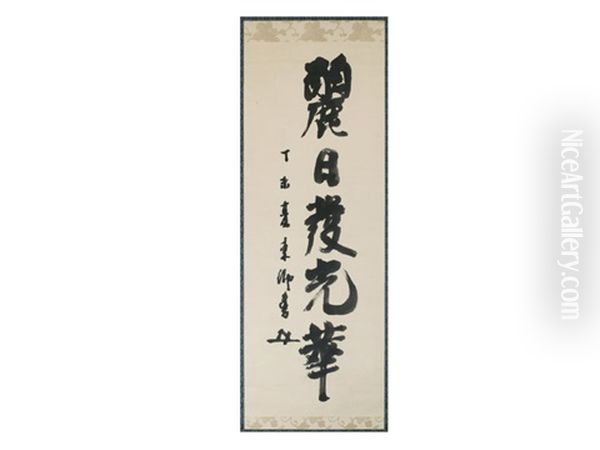 麗日發光華
丁未夏東鄉書
NiceArtGallery.com